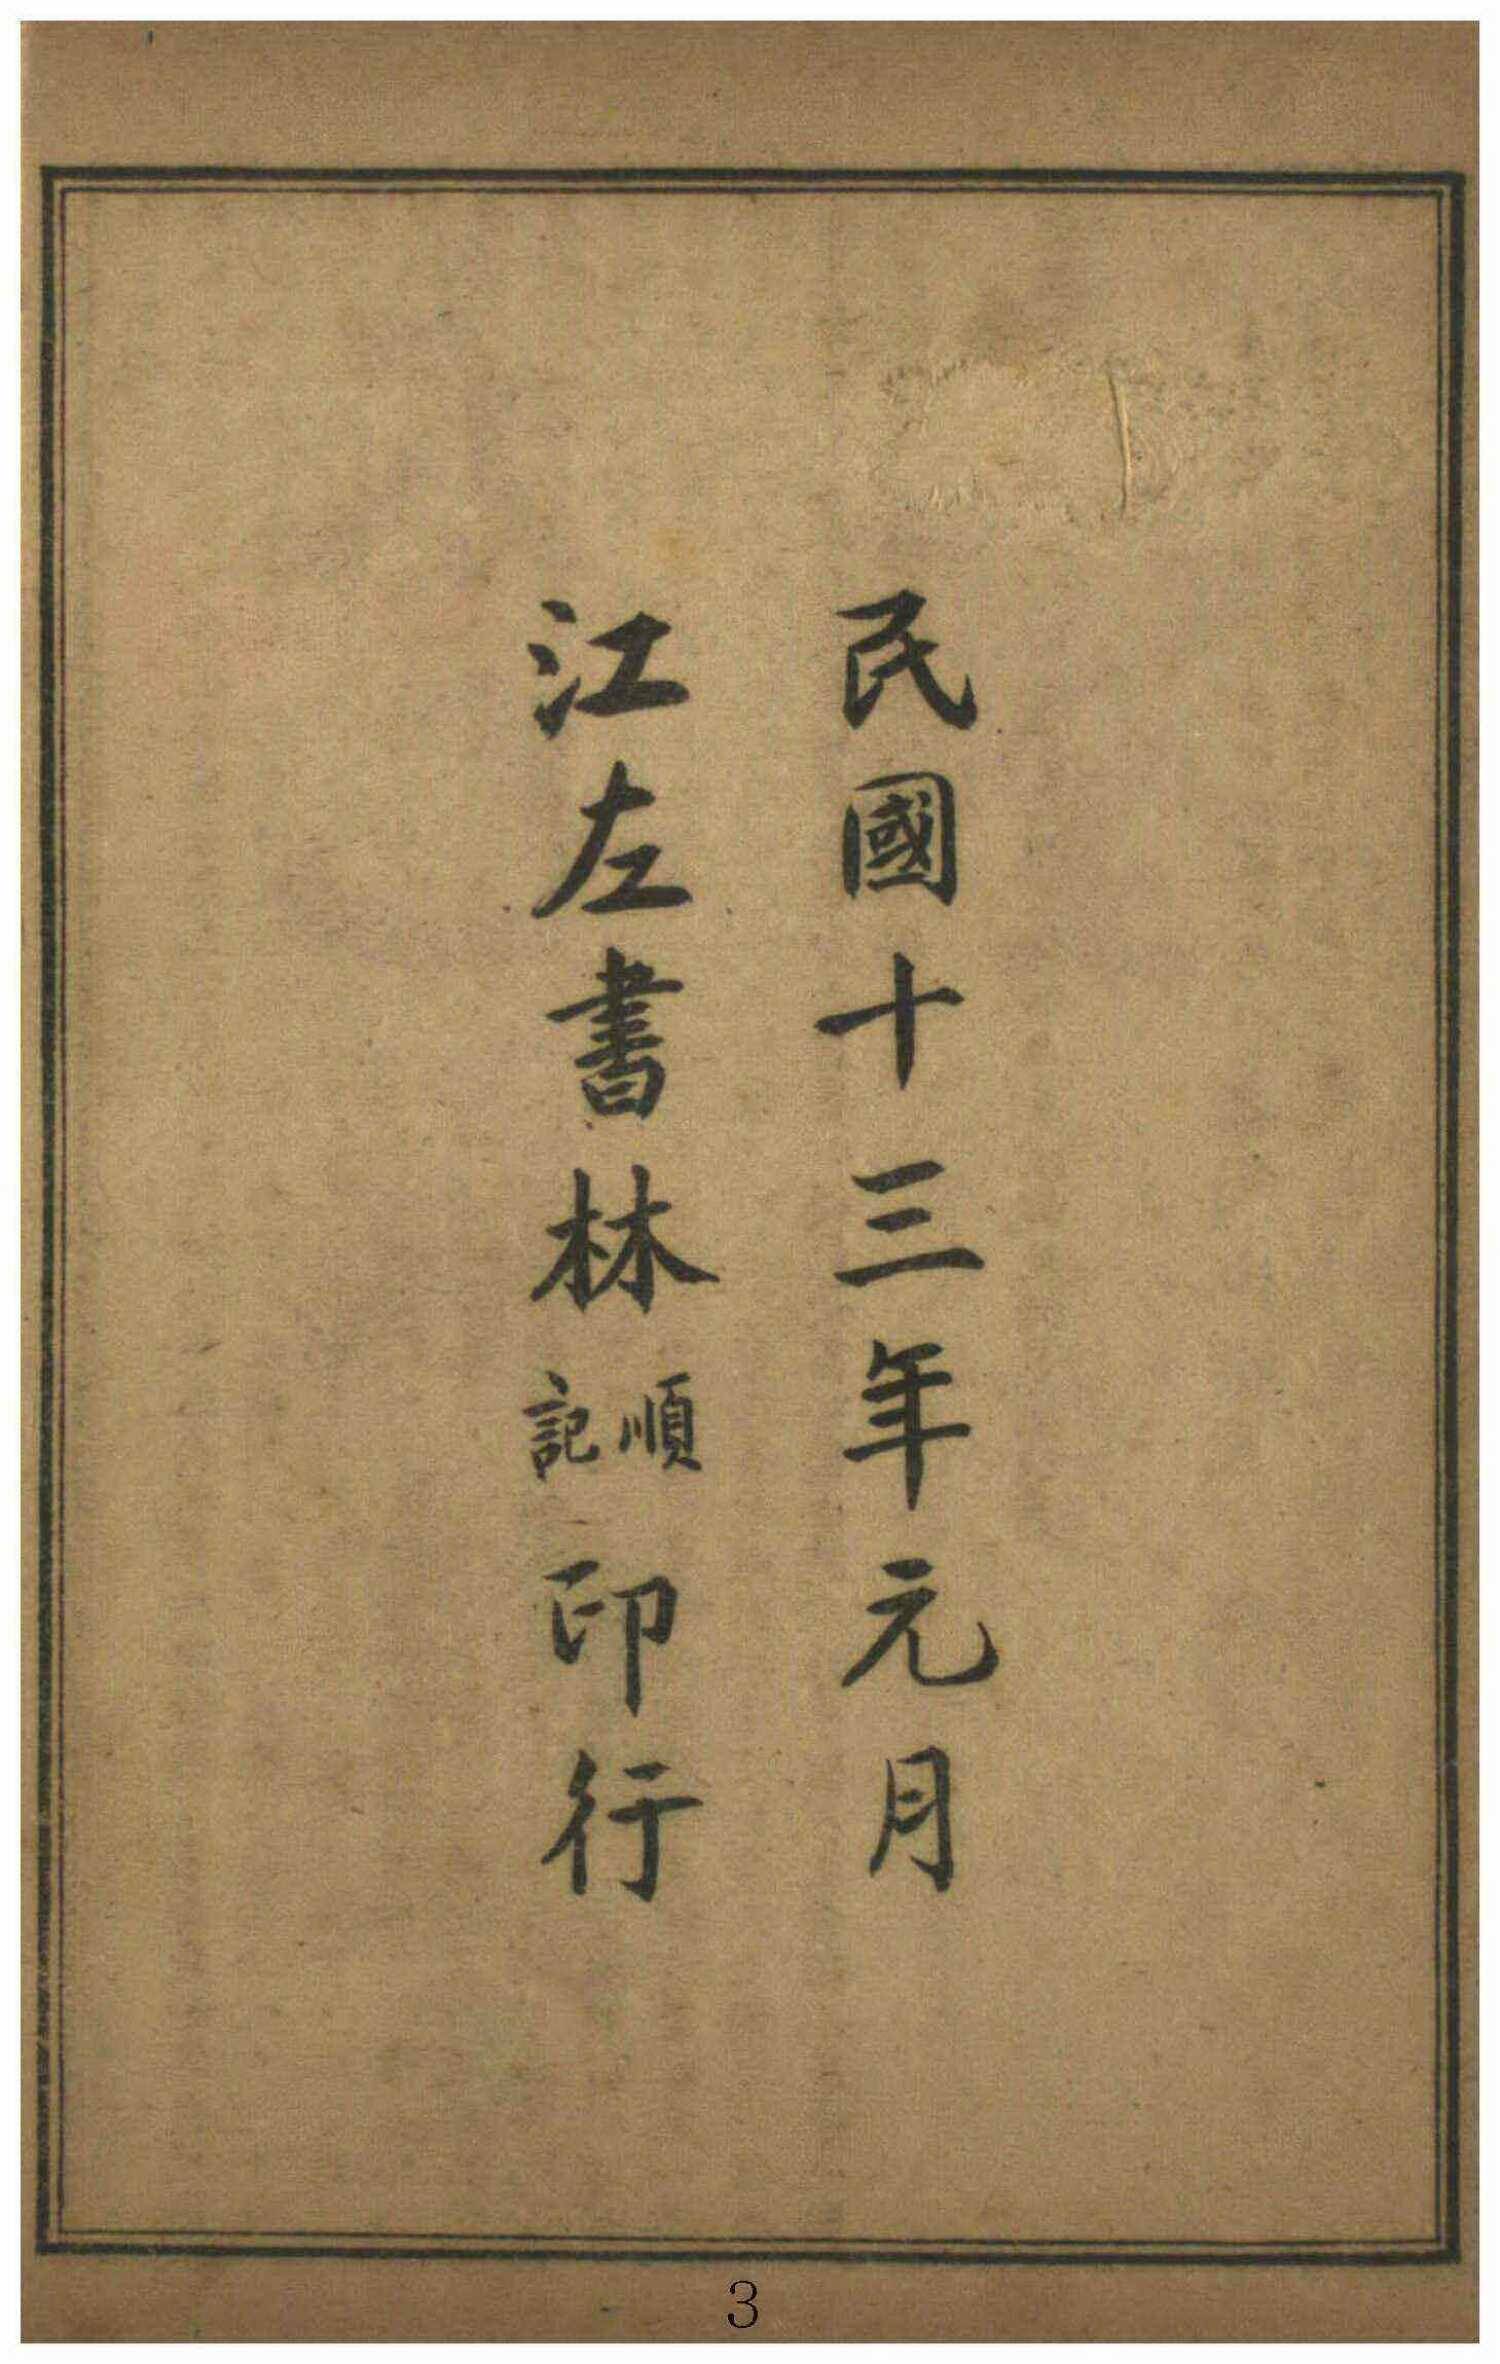 民國十三年元月
江左書林順記印行
3